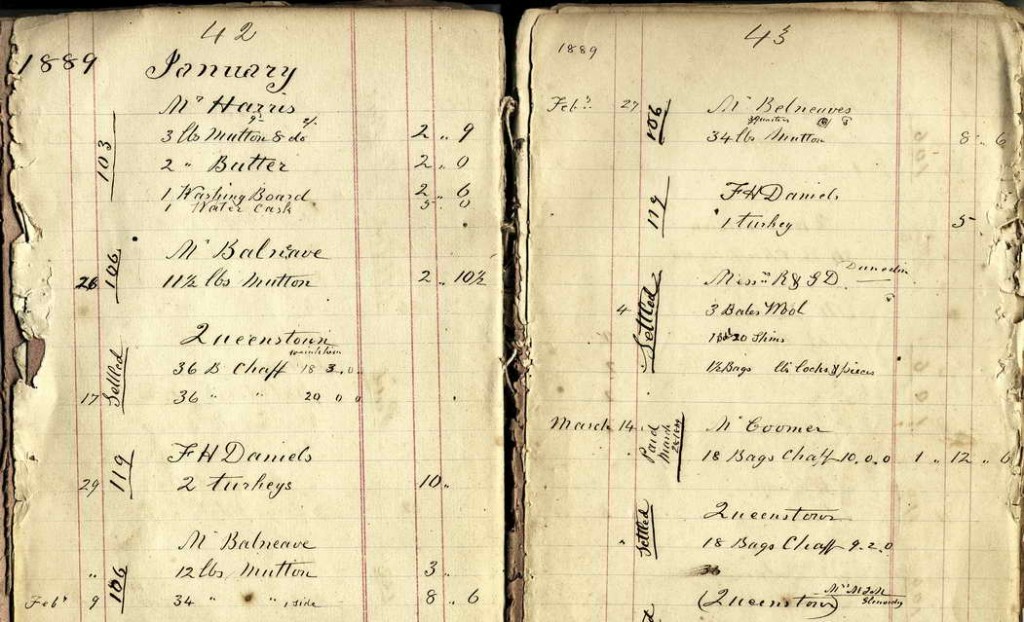 42
1889 January
Mr Harris
103 3 lbs Mutton & do 2 .. 9
2 " Butter 2 .. 0
1 Washing Board 2 .. 6
1 Water Cask 5 . 0
Mr Balneave
26 106 11½ lbs Mutton 2 .. 10½
Queenstown
Settled 36 B Chaff 18 3 . 0
17 36 " " 20 0 0
F H Daniels
29 119 2 turkeys 10 ..
Mr Balneave
" 106 12 lbs Mutton 3 ..
Feby 9 34 " " 1 side 8 .. 6
43
1889
Feby 27 106 Mr Belneaves
34 lbs Mutton 8 .. 6
119 F H Daniels
1 turkey 5
Messrs R & G D Dunedin
4 Settled 3 Bales Wool
20 Skins
1½ Bags Locks & pieces
March 14 Paid March Mr Coomer
18 Bags Chaff 10.0.0 1 .. 12 .. 6
Queenstown
" Settled 18 Bags Chaff 9.2.0
36
(Queenstown)